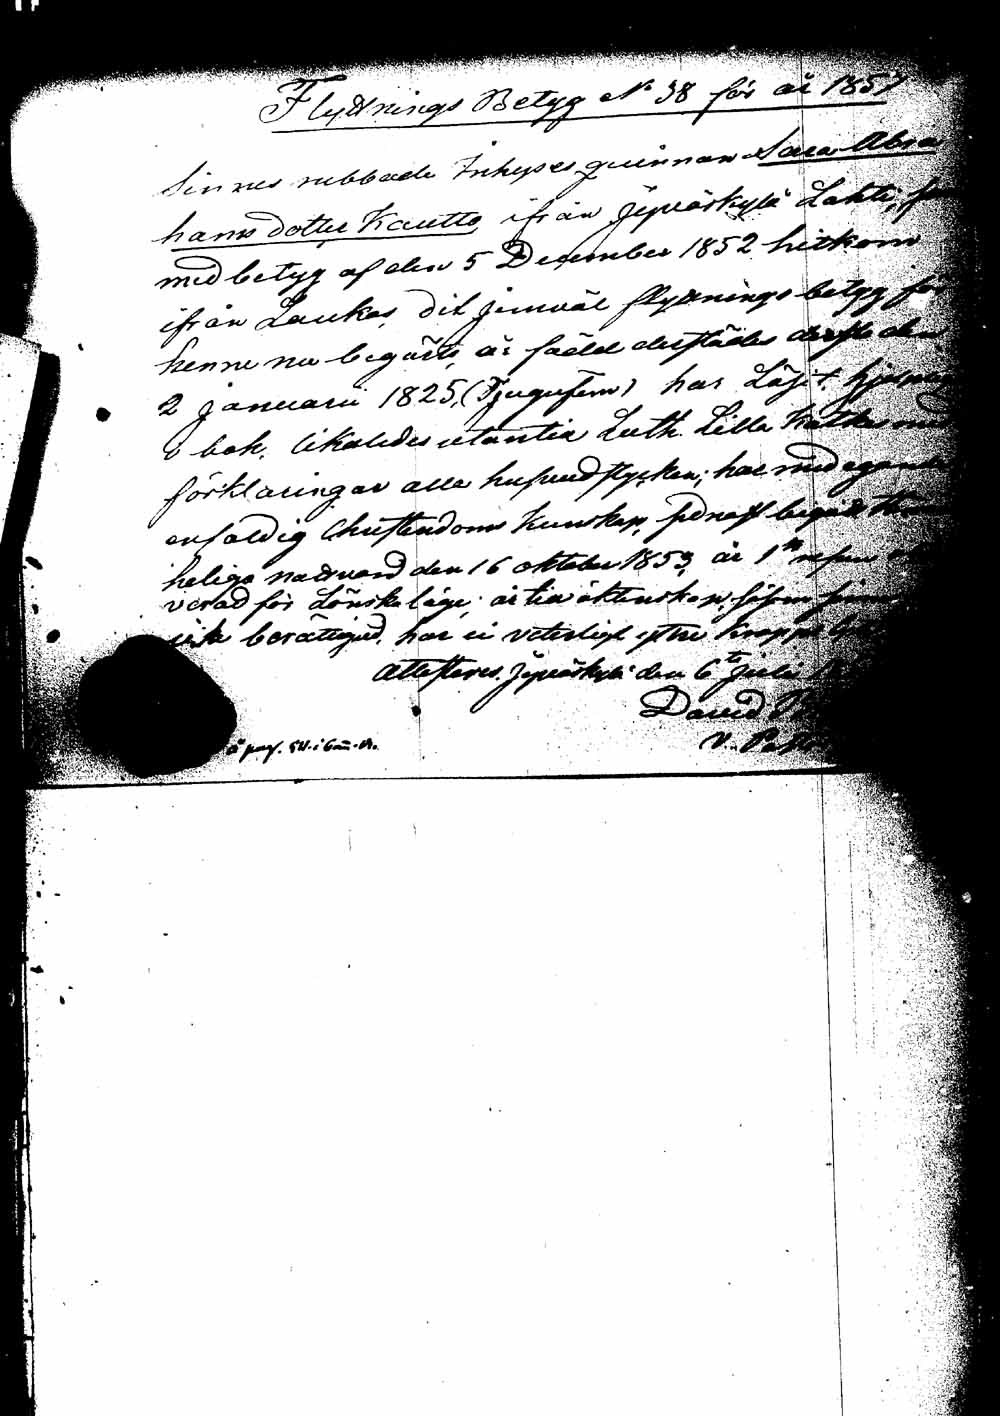 Flyttnings Betyg No 38 för år 1857
Sinnes rubbade Inhyses quinnan Sara Abra
hams dotter Kautto, ifrån Jyväskylä Lahti, som
med betyg af den 5 December 1852 hitkom
ifrån Laukas, dit jemväl flyttnings betyg för
henne nu begärts, är född derstädes den
2 januarii 1825, (Tjugufem) har Läsit
i bok, likaledes utantia Luth. Lilla Katkes med
förklaringar alla hufvudstycken; har med
enfaldig Christendoms kunskap, senast begått
heliga nattvard den 16 oktober 1853, är 1
verad för Lönskaläge; är till äktenskap, såsom
icke berättigad, har ei veterligt yttre
Attesteras. Jyväskylä den 6te Julii
David
V. Pastor
å pag.